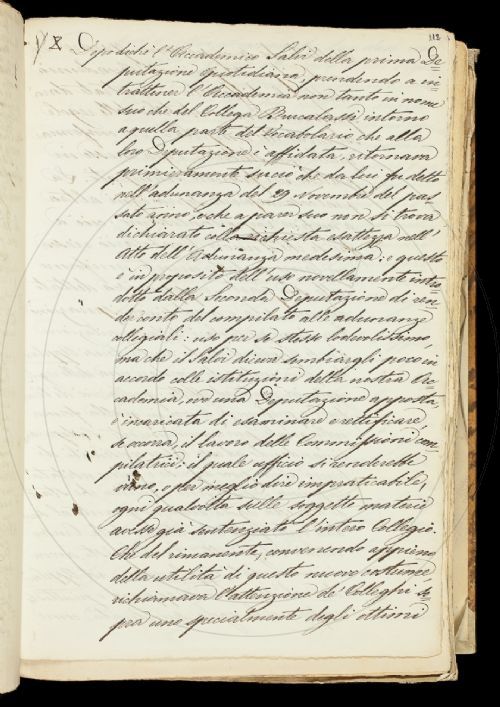 118
Dopodichè l'Accademico Salvi della prima De-
putazione quotidiana, prendendo a in-
trattener l'Accademia non tanto in nome
suo che del Collega Brucalassi intorno
a quella parte del vocabolario, che alla
loro Deputazione è affidata, ritornava
primieramente su ciò che da lui fu detto
nell'adunanza del 29 novembre del pas
sato anno, e che a parer suo non si trova
dichiarato colla richiesta esattezza nell'
Atto dell'Adunanza medesima: e questo
è in proposito dell'uso novellamente intro-
dotto dalla Seconda Deputazione di ren-
der conto del compilato alle adunanze
collegiali: uso per se stesso lodevolissimo,
ma che il Salvi diceva sembrargli poco in
accordo colle istituzioni della nostra Ac
cademia, ove una Deputazione apposita,
è incaricata di esaminare e rettificare,
se occorra, il lavoro delle Commissioni com-
pilatrici; il quale ufficio si renderebbe
vano, o per meglio dire impraticabile,
ogni qualvolta sulle soggette materie
avesse già sentenziato l'intero Collegio.
Che del rimanente, convenendo appieno
della utilità di questo nuovo costume
richiamava l'attenzione de' Colleghi so-
pra uno specialmente degli ottimi